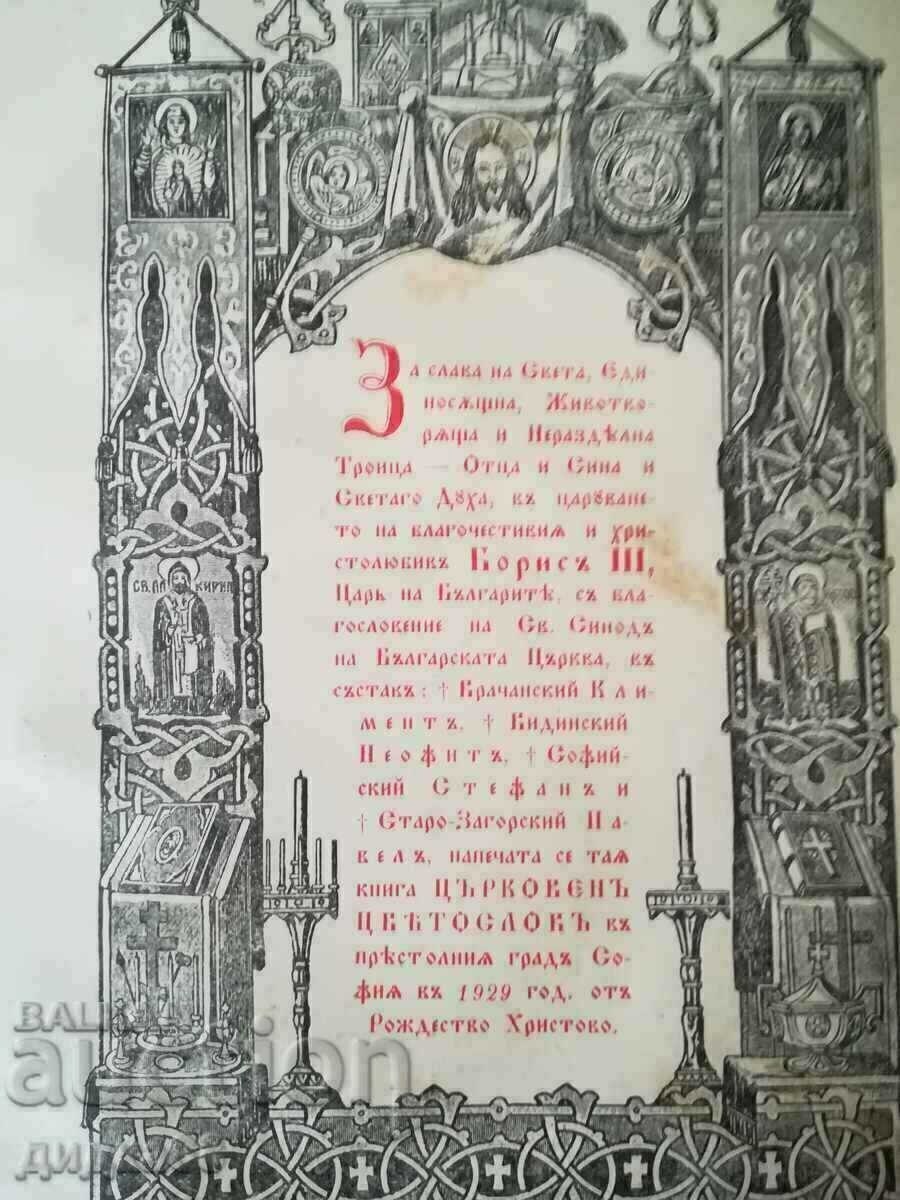 За слава на Света, Еди
носѫщна, Животво-
рѧща и Нераздѣлна
Троица — Отца и Сина и
Светаго Дꙋха, въ царꙋване-
то на благочестивиѧ и хри-
столюбивъ Борисъ III,
Царь на Българитѣ, съ бла-
гословение на Св. Синодъ
на Българската Църква, въ
съставъ: † Врачанский Кли-
ментъ, † Видинский
Неофитъ, † Софий-
ский Стефанъ и
† Старо-Загорский Па-
велъ, напечата се таѧ
книга ЦЪРКОВЕНЪ
ЦВѢТОСЛОВЪ въ
прѣстолниѧ градъ Со-
фиѧ въ 1929 год. отъ
Рождество Христово.
СВ.
КИРИЛ
auction